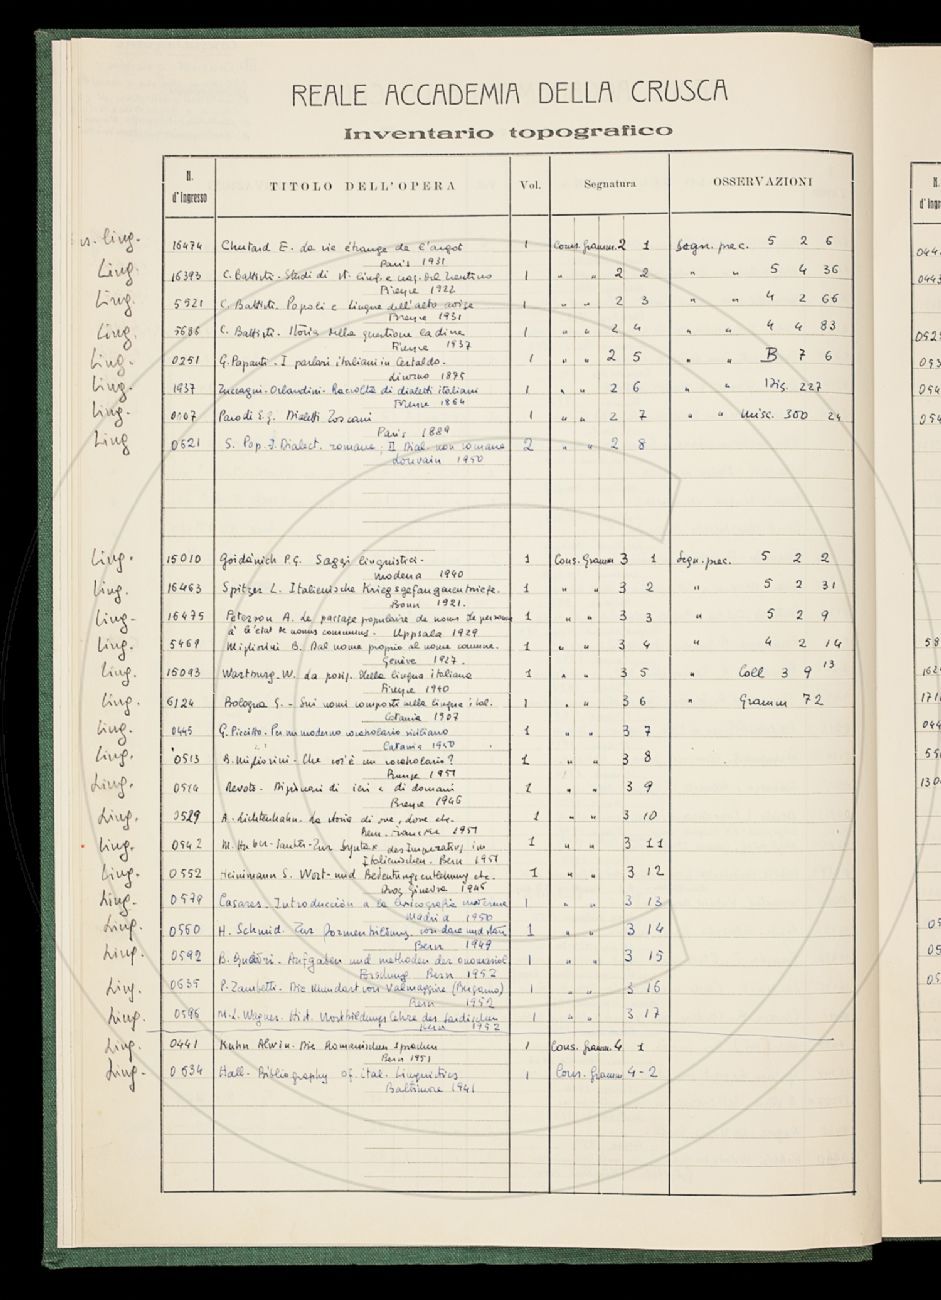 REALE ACCADEMIA DELLA CRUSCA
Inventario topografico
N. d'Ingresso TITOLO DELL'OPERA Vol. Segnatura OSSERVAZIONI
ling. 16474 Chutard E. La vie étrange de l'argot 1 Cons. Gramm. 2 1 Segn. prec. 5 2 6
Paris 1931
Ling. 16393 C. Battisti - Studi di st. ling. e naz. del Trentino 1 " " 2 2 " " 5 4 36
Firenze 1922
Ling. 5921 C. Battisti. Popoli e lingue dell'alto adige 1 " " 2 3 " " 4 2 66
Firenze 1931
Ling. 5686 C. Battisti. Storia della questione ladina 1 " " 2 4 " " 4 4 83
Firenze 1937
Ling. 0251 G. Papanti - I parlari italiani in Certaldo. 1 " " 2 5 " " B 7 6
Livorno 1875
Ling. 1937 Zuccagni-Orlandini - Raccolta di dialetti italiani 1 " " 2 6 " " Diz. 227
Firenze 1864
Ling. 0107 Parodi E.G. Dialetti Toscani 1 " " 2 7 " " Misc. 300 24
Paris 1889
Ling 0621 S. Pop. I. Dialect. romane; II Dial. non romane 2 " " 2 8
Louvain 1950
Ling. 15010 Goidànich P.G. Saggi linguistici - 1 Cons. Gramm 3 1 Segn. prec. 5 2 2
Modena 1940
Ling. 16463 Spitzer L. Italienische Kriegsgefangenenbriefe. 1 " " 3 2 " 5 2 31
Bonn 1921.
Ling. 16475 Peterson A. Le passage populaire de noms de personne 1 " " 3 3 " 5 2 9
à l'état de noms communs. Uppsala 1929
Ling. 5469 Migliorini B. Dal nome proprio al nome comune. 1 " " 3 4 " 4 2 14
Genève 1927.
Ling. 15093 Wartburg. W. La posiz. della lingua italiana 1 " " 3 5 " Coll 3 9 13
Firenze 1940
Ling. 6124 Bologna S. - Sui nomi composti nella lingua ital. 1 " " 3 6 " Gramm 72
Catania 1907
Ling. 0445 G. Piccitto. Per un moderno vocabolario siciliano 1 " " 3 7
Catania 1950
Ling. 0513 B. Migliorini - Che cos'è un vocabolario? 1 " " 3 8
Firenze 1951
Ling. 0514 Devoto - Dizionari di ieri e di domani 1 " " 3 9
Firenze 1946
Ling. 0529 A. Lichtenhahn. La storia di ove, dove etc. 1 " " 3 10
Bern. Francke 1951
Ling. 0542 M. Huber-Sauter - Zur Syntax des Imperativs im 1 " " 3 11
Italienischen. Bern 1951
Ling. 0552 Heinimann S. Wort- und Bedeutungsentlehnung etc. 1 " " 3 12
Droz Ginevra 1945
Ling. 0579 Casares. Introducción a la lexicografia moderna 1 " " 3 13
Madrid 1950
Ling. 0560 H. Schmid. Zur Formenbildung von dare und stare 1 " " 3 14
Bern 1949
Ling. 0592 B. Quadri. Aufgaben und methoden der onomasiol. 1 " " 3 15
Forschung Bern 1952
Ling. 0635 P. Zambetti. Die Mundart von Valmaggiore (Bergamo) 1 " " 3 16
Bern 1952
Ling. 0596 M.L. Wagner. Hist. Wortbildungslehre des Sardischen 1 " " 3 17
Bern 1952
Ling. 0441 Kuhn Alwin. Die Romanischen Sprachen 1 Cons. Gramm. 4 1
Bern 1951
Ling. 0634 Hall - Bibliography of ital. Linguistics 1 Cons. Gramm 4-2
Baltimore 1941